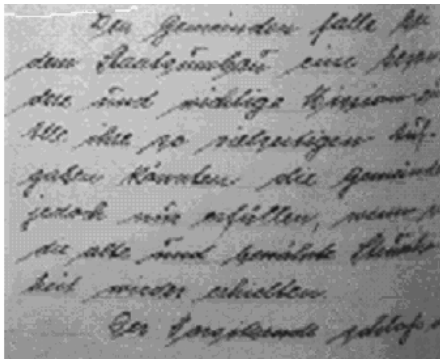 Den Gemeinden falle bei
dem Staatsumbau eine beson-
dere und wichtige Mission zu
Alle ihre so vielseitigen Auf-
gaben könnten die Gemeinden
jedoch nur erfüllen, wenn
die alte und bewährte
heit wieder erhielten.
Der Vorsitzende schloß